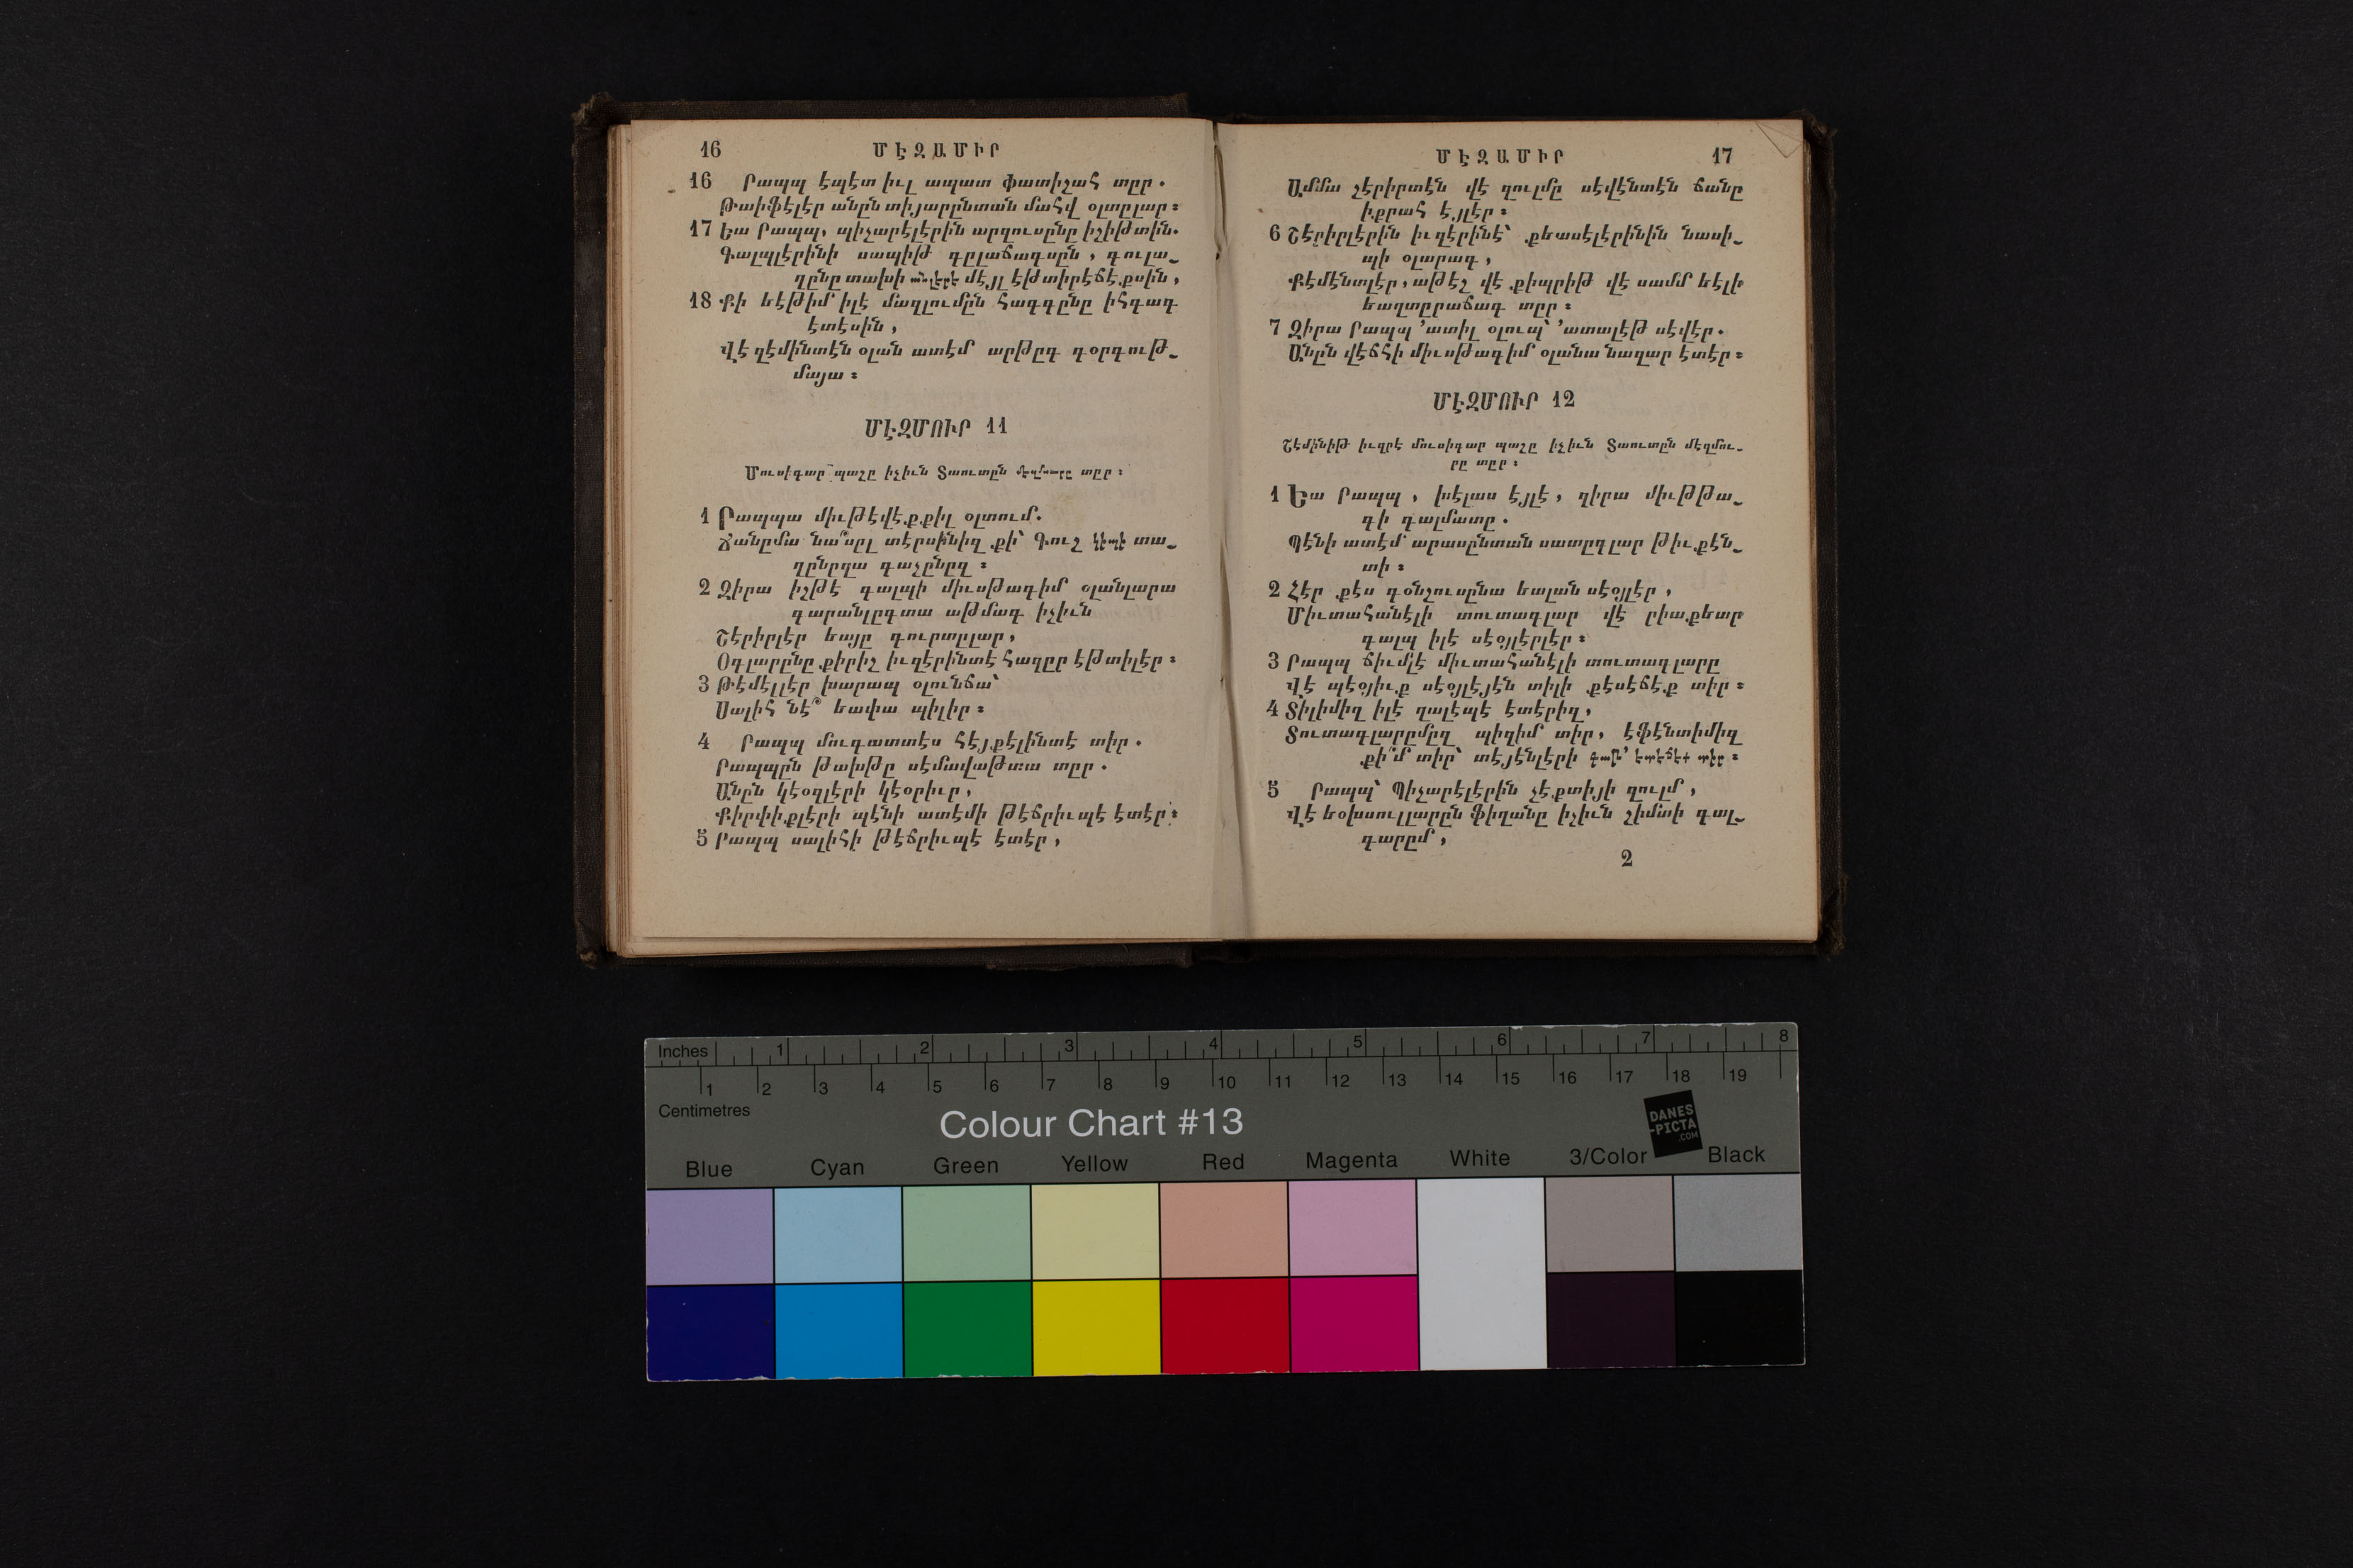 16 ՄԷԶԱՄԻՐ
16 Րապպ էպէտ իւլ ապատ փատիշահ տըր.
Թաիֆէլէր անըն տիյարընտան մահվ օլտըլար։
17 Եա Րապպ, պիչարէլէրին արզուսընը իշիթտին.
Գալպլէրինի սապիթ գըլաճագսըն, գուլա-
ղընը տախի անլէրէ մէյլ էթտիրէճէքսին,
18 Քի եէթիմ իլէ մազլումըն հագգընը իհգագ
էտէսին,
Վէ զէմինտէն օլան ատէմ արթըգ գօրգութ-
մայա։
ՄԷԶՄՈՒՐ 11
Մուսիգար պաշը իչիւն Տաուտըն մէզմուրը տըր։
1 Րապպա միւթէվէքքիլ օլտում.
Ճանըմա նա՞սըլ տէրսինիզ քի՝ Գուշ կէպէ տա-
ղընըզա գաչընըզ։
2 Զիրա իշթէ գալպի միւսթագիմ օլանլարա
գարանլըգտա աթմագ իչիւն
Շէրիրլէր եայը գուրտըլար,
Օգլարընը քիրիշ իւզէրինտէ հազըր էթտիլէր։
3 Թէմէլլէր խարապ օլունճա՝
Սալիհ նէ՞ եափա պիլիր։
4 Րապպ մուգատտէս հէյքէլինտէ տիր.
Րապպըն թախթը սէմավաթտա տըր.
Անըն կէօզլէրի կէօրիւր,
Քիրփիքլէրի պէնի ատէմի թէճրիւպէ էտէր։
5 Րապպ սալիհի թէճրիւպէ էտէր,
ՄԷԶԱՄԻՐ 17
Ամմա շէրիրտէն վէ զուլմը սէվէնտէն ճանը
իքրահ էյլէր։
6 Շէրիրլէրին իւզէրինէ՝ քեասէլէրինին նասի-
պի օլարագ,
Քէմէնտլէր, աթէշ վէ քիպրիթ վէ սամմ եէլի
եաղտըրաճագ տըր։
7 Զիրա Րապպ ՚ատիլ օլուպ՝ ՚ատալէթ սէվէր.
Անըն վէճհի միւսթագիմ օլանա նազար էտէր։
ՄԷԶՄՈՒՐ 12
Շէմինիթ իւզրէ մուսիգար պաշը իչիւն Տաուտըն մէզմու-
րը տըր։
1 Եա Րապպ, խէլաս էյլէ, զիրա միւթթա-
գի գալմատը.
Պէնի ատէմ արասընտան սատըգլար թիւքէն-
տի։
2 Հէր քէս գօնշուսընա եալան սէօյլէր,
Միւտահանէլի տուտագլար վէ րիաքեար
գալպ իլէ սէօյլէրլէր։
3 Րապպ ճիւմլէ միւտահանէլի տուտագլարը
Վէ պէօյիւք սէօյլէյէն տիլի քէսէճէք տիր։
4 Տիլիմիզ իլէ ղալէպէ էտէրիզ,
Տուտագլարըմըզ պիզիմ տիր, էֆէնտիմիզ
քի՞մ տիր՝ տէյէնլէրի գալ՚ էտէճէք տիր։
5 Րապպ՝ Պիչարէլէրին չէքտիյի զուլմ,
Վէ եօխսուլլարըն ֆիղանը իչիւն շիմտի գալ-
գարըմ,
2
Inches 1 2 3 4 5 6 7 8
1 2 3 4 5 6 7 8 9 10 11 12 13 14 15 16 17 18 19
Centimetres
Colour Chart #13
DANES
-PICTA
.COM
Blue Cyan Green Yellow Red Magenta White 3/Color Black